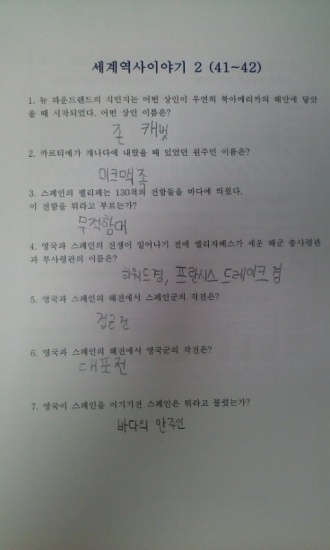 세계역사이야기 2 (41~42)
1. 뉴 파운드랜드의 식민지는 어떤 상인이 우연히 북아메리카의 해안에 닿았
을 때 시작되었다. 어떤 상인 이름은?
존 캐벗
2. 카르티에가 캐나다에 내렸을 때 있었던 원주민 이름은?
미크맥족
3. 스페인의 펠리페는 130척의 전함들을 바다에 띄웠다.
이 전함을 뭐라고 부르는가?
무적함대
4. 영국과 스페인의 전쟁이 일어나기 전에 엘리자베스가 세운 해군 총사령관
과 부사령관의 이름은?
하워드경, 프란시스 드레이크 경
5. 영국과 스페인의 해전에서 스페인군의 작전은?
접근전
6. 영국과 스페인의 해전에서 영국군의 작전은?
대포전
7. 영국이 스페인을 이기기전 스페인은 뭐라고 불렸는가?
바다의 안주인